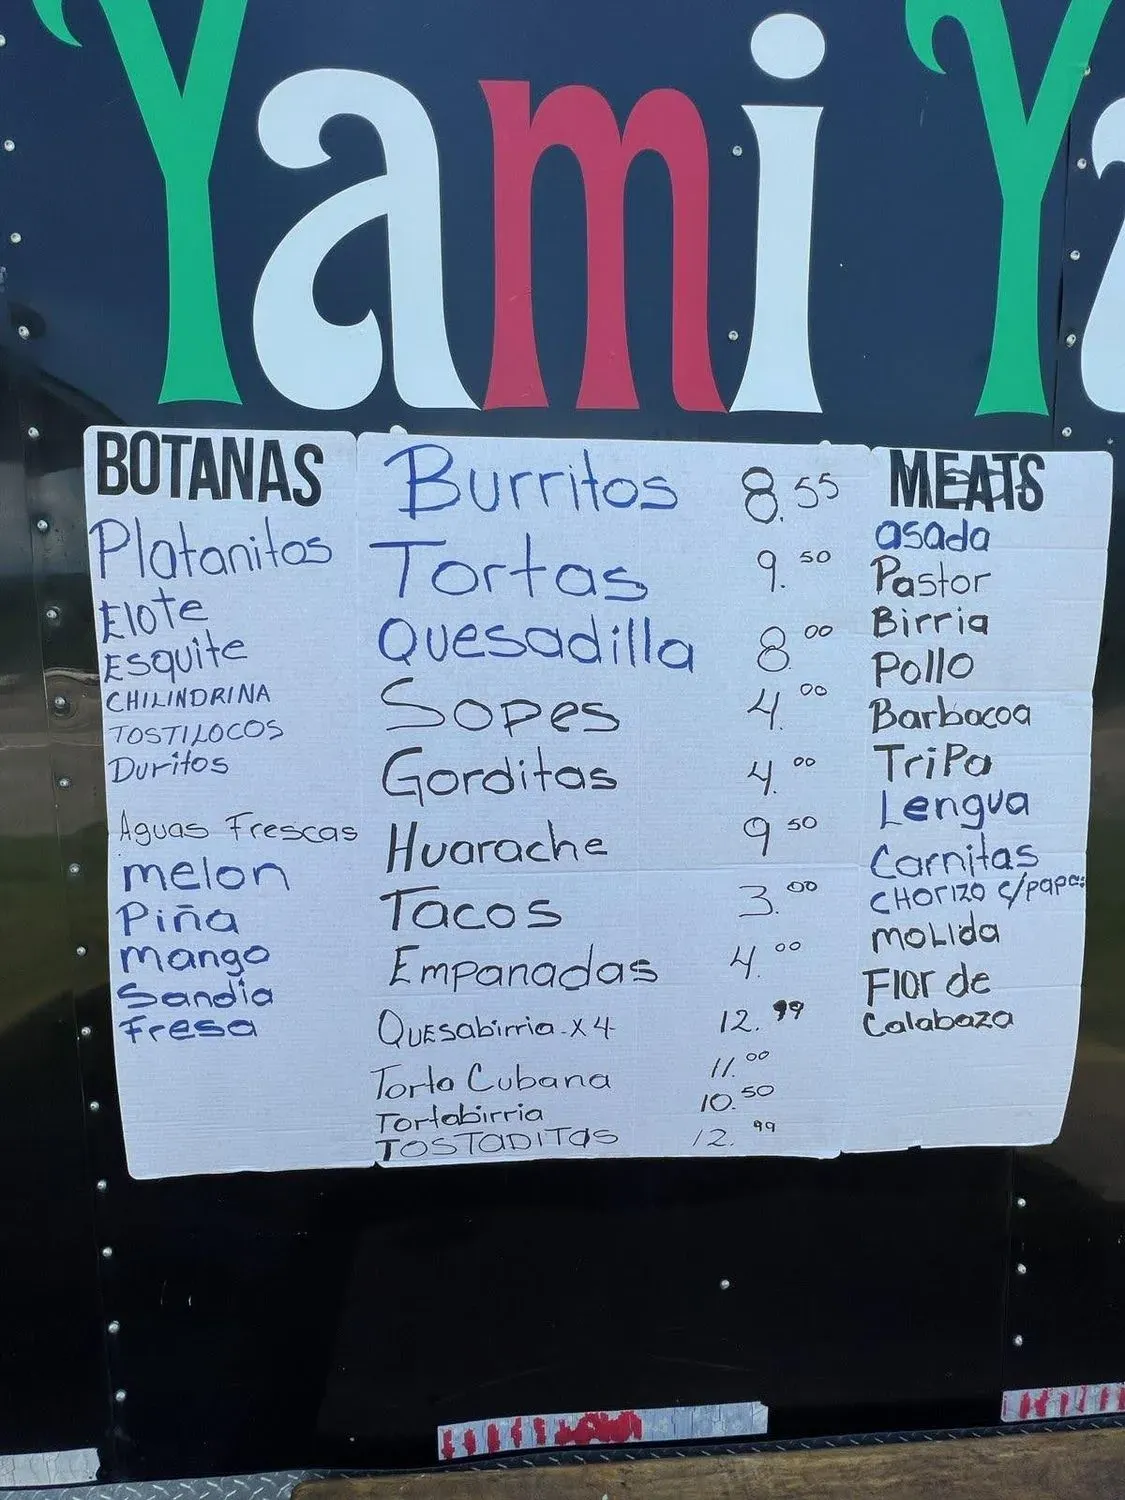 Yami Y
BOTANAS
Platanitos
Elote
Esquite
CHILINDRINA
TOSTILOCOS
Duritos
Aguas Frescas
melon
Piña
mango
Sandia
Fresa
Burritos 8.55
Tortas 9.50
Quesadilla 8.00
Sopes 4.00
Gorditas 4.00
Huarache 9 50
Tacos 3.00
Empanadas 4.00
Quesabirria x 4 12.99
Torta Cubana 11.00
Tortabirria 10.50
TOSTADITAS 12.99
MEATS
asada
Pastor
Birria
Pollo
Barbacoa
TriPa
Lengua
Carnitas
CHORIZO c/papas
moLida
Flor de
Calabaza